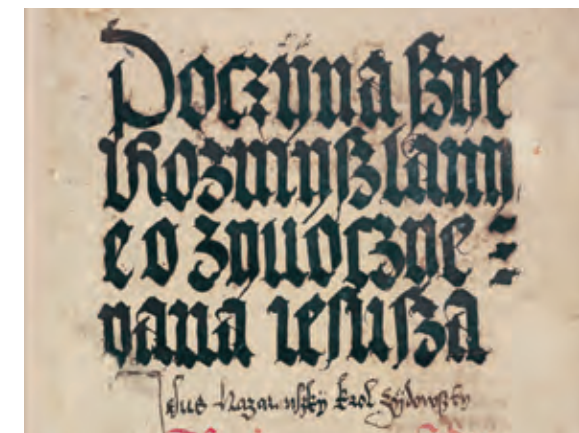 Poczyna ßye
Rozmyßlany
e o zywocżye
pana ieſußa
Jeſus Nazaranßky krol żydowßky